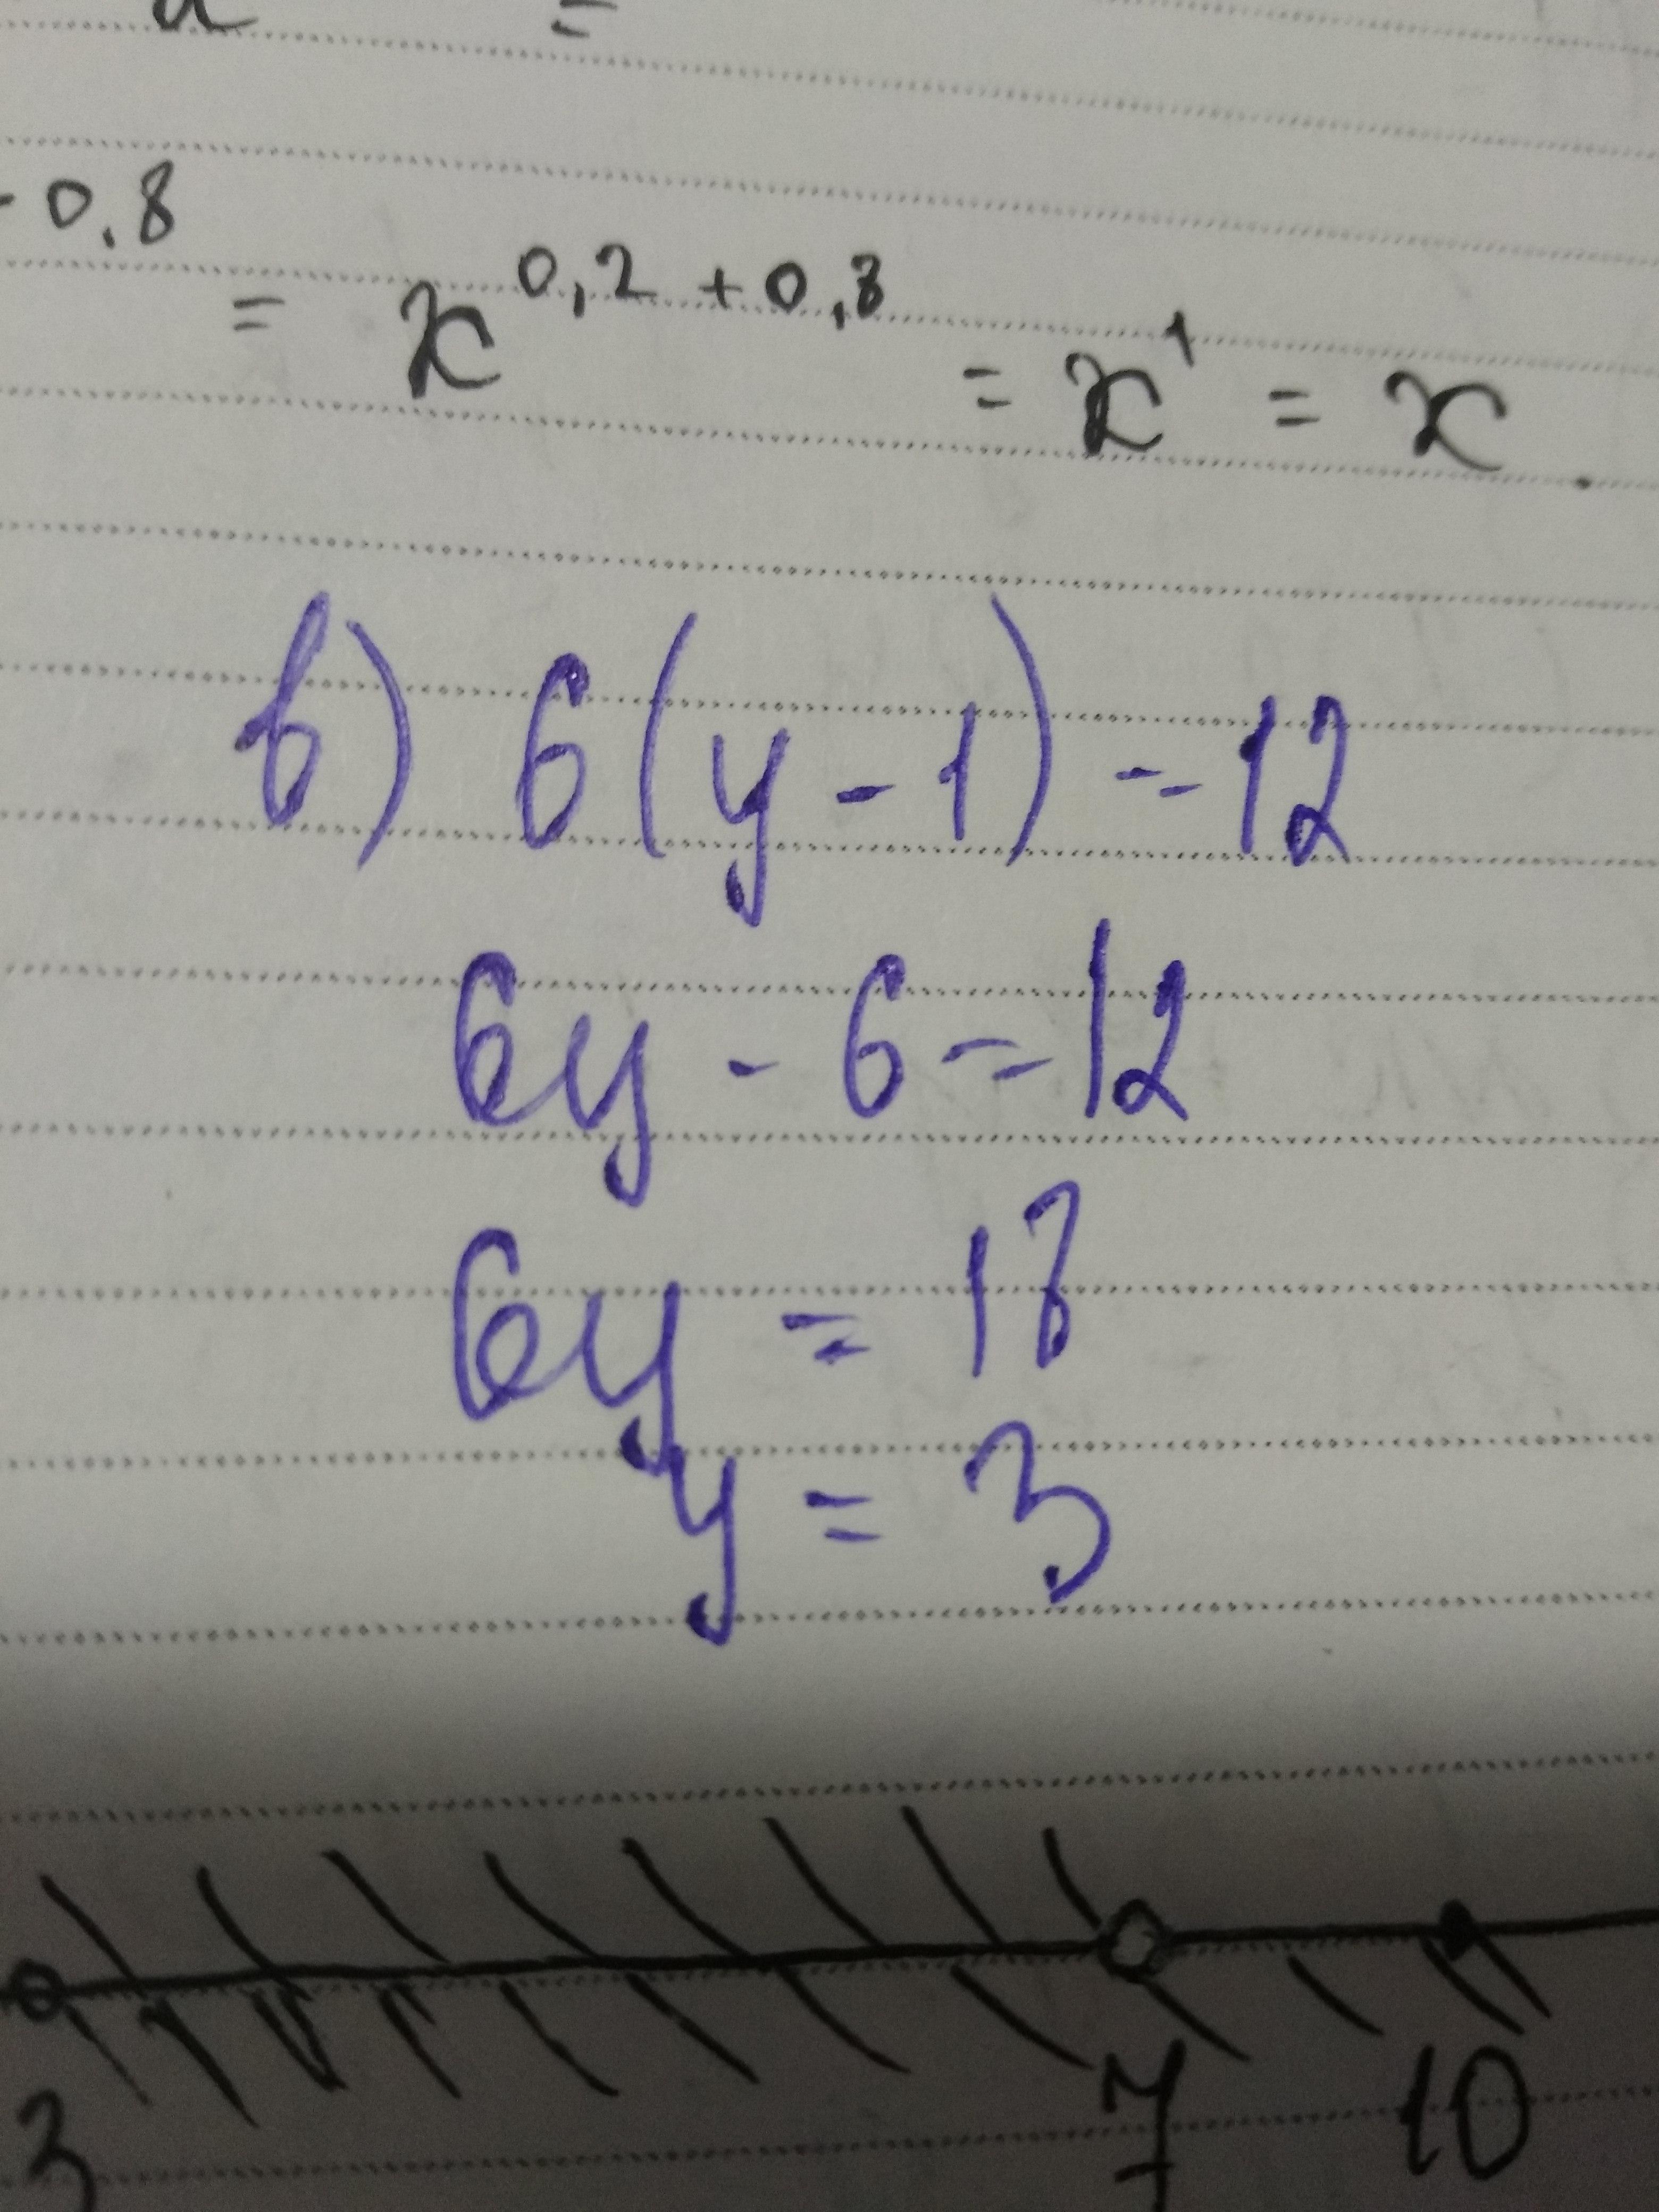 -0,8 = x^0,2+0,8 = x^1 = x.
b) 6(y-1)=12
6y-6=12
6y=18
y=3
3 7 10